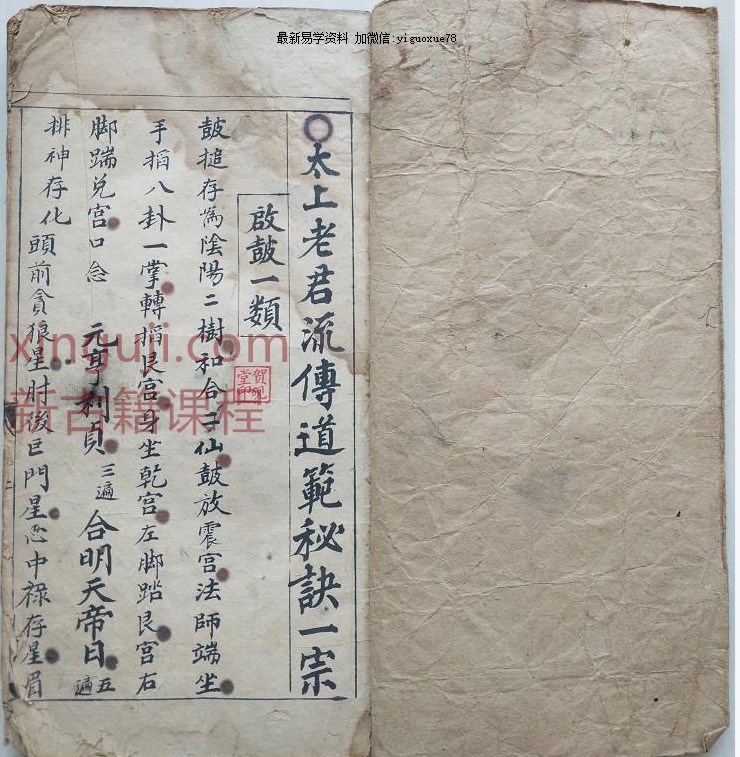 最新易学资料 加微信:yiguoxue78
太上老君流傳道範秘訣一宗
啟鼓一類
鼓搥存為陰陽二樹和合二仙鼓放震宮法師端坐
手搯八卦一掌轉搯艮宮身坐乾宮左脚踏艮宮右
脚踹兌宮口念 元亨利貞 三遍 合明天帝日 五遍
排神存化 頭前貪狼星肘後巨門星心中祿存星眉
賀
堂印
xinguji.com
新古籍课程